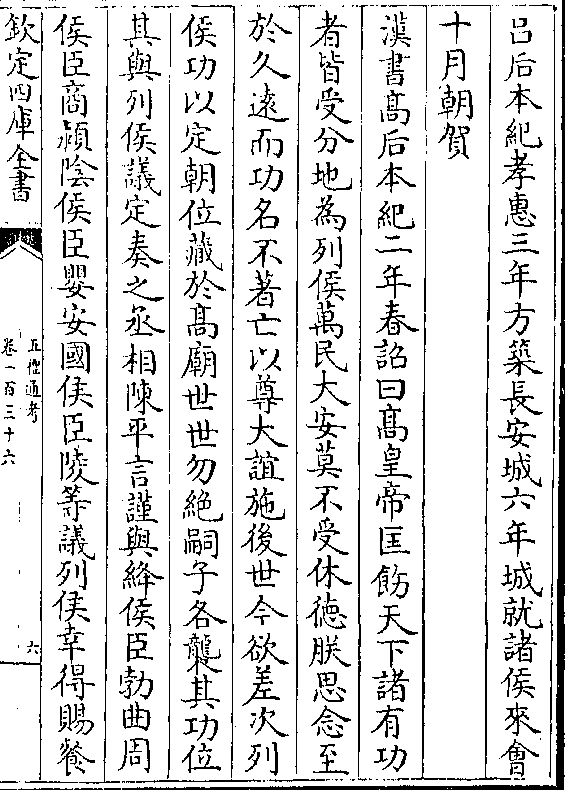 呂后本紀孝惠三年方築長安城六年城就諸侯來會
十月朝賀
漢書髙后本紀二年春詔曰髙皇帝匡飭天下諸有功
者皆受分地為列侯萬民大安莫不受休徳朕思念至
於久遠而功名不著亡以尊大誼施後世今欲差次列
侯功以定朝位藏於髙廟世世勿絶嗣子各襲其功位
其與列侯議定奏之丞相陳平言謹與絳侯臣勃曲周
侯臣商潁隂侯臣嬰安國侯臣陵等議列侯幸得賜餐
欽定四庫全書
五禮通考
卷一百三十六
六